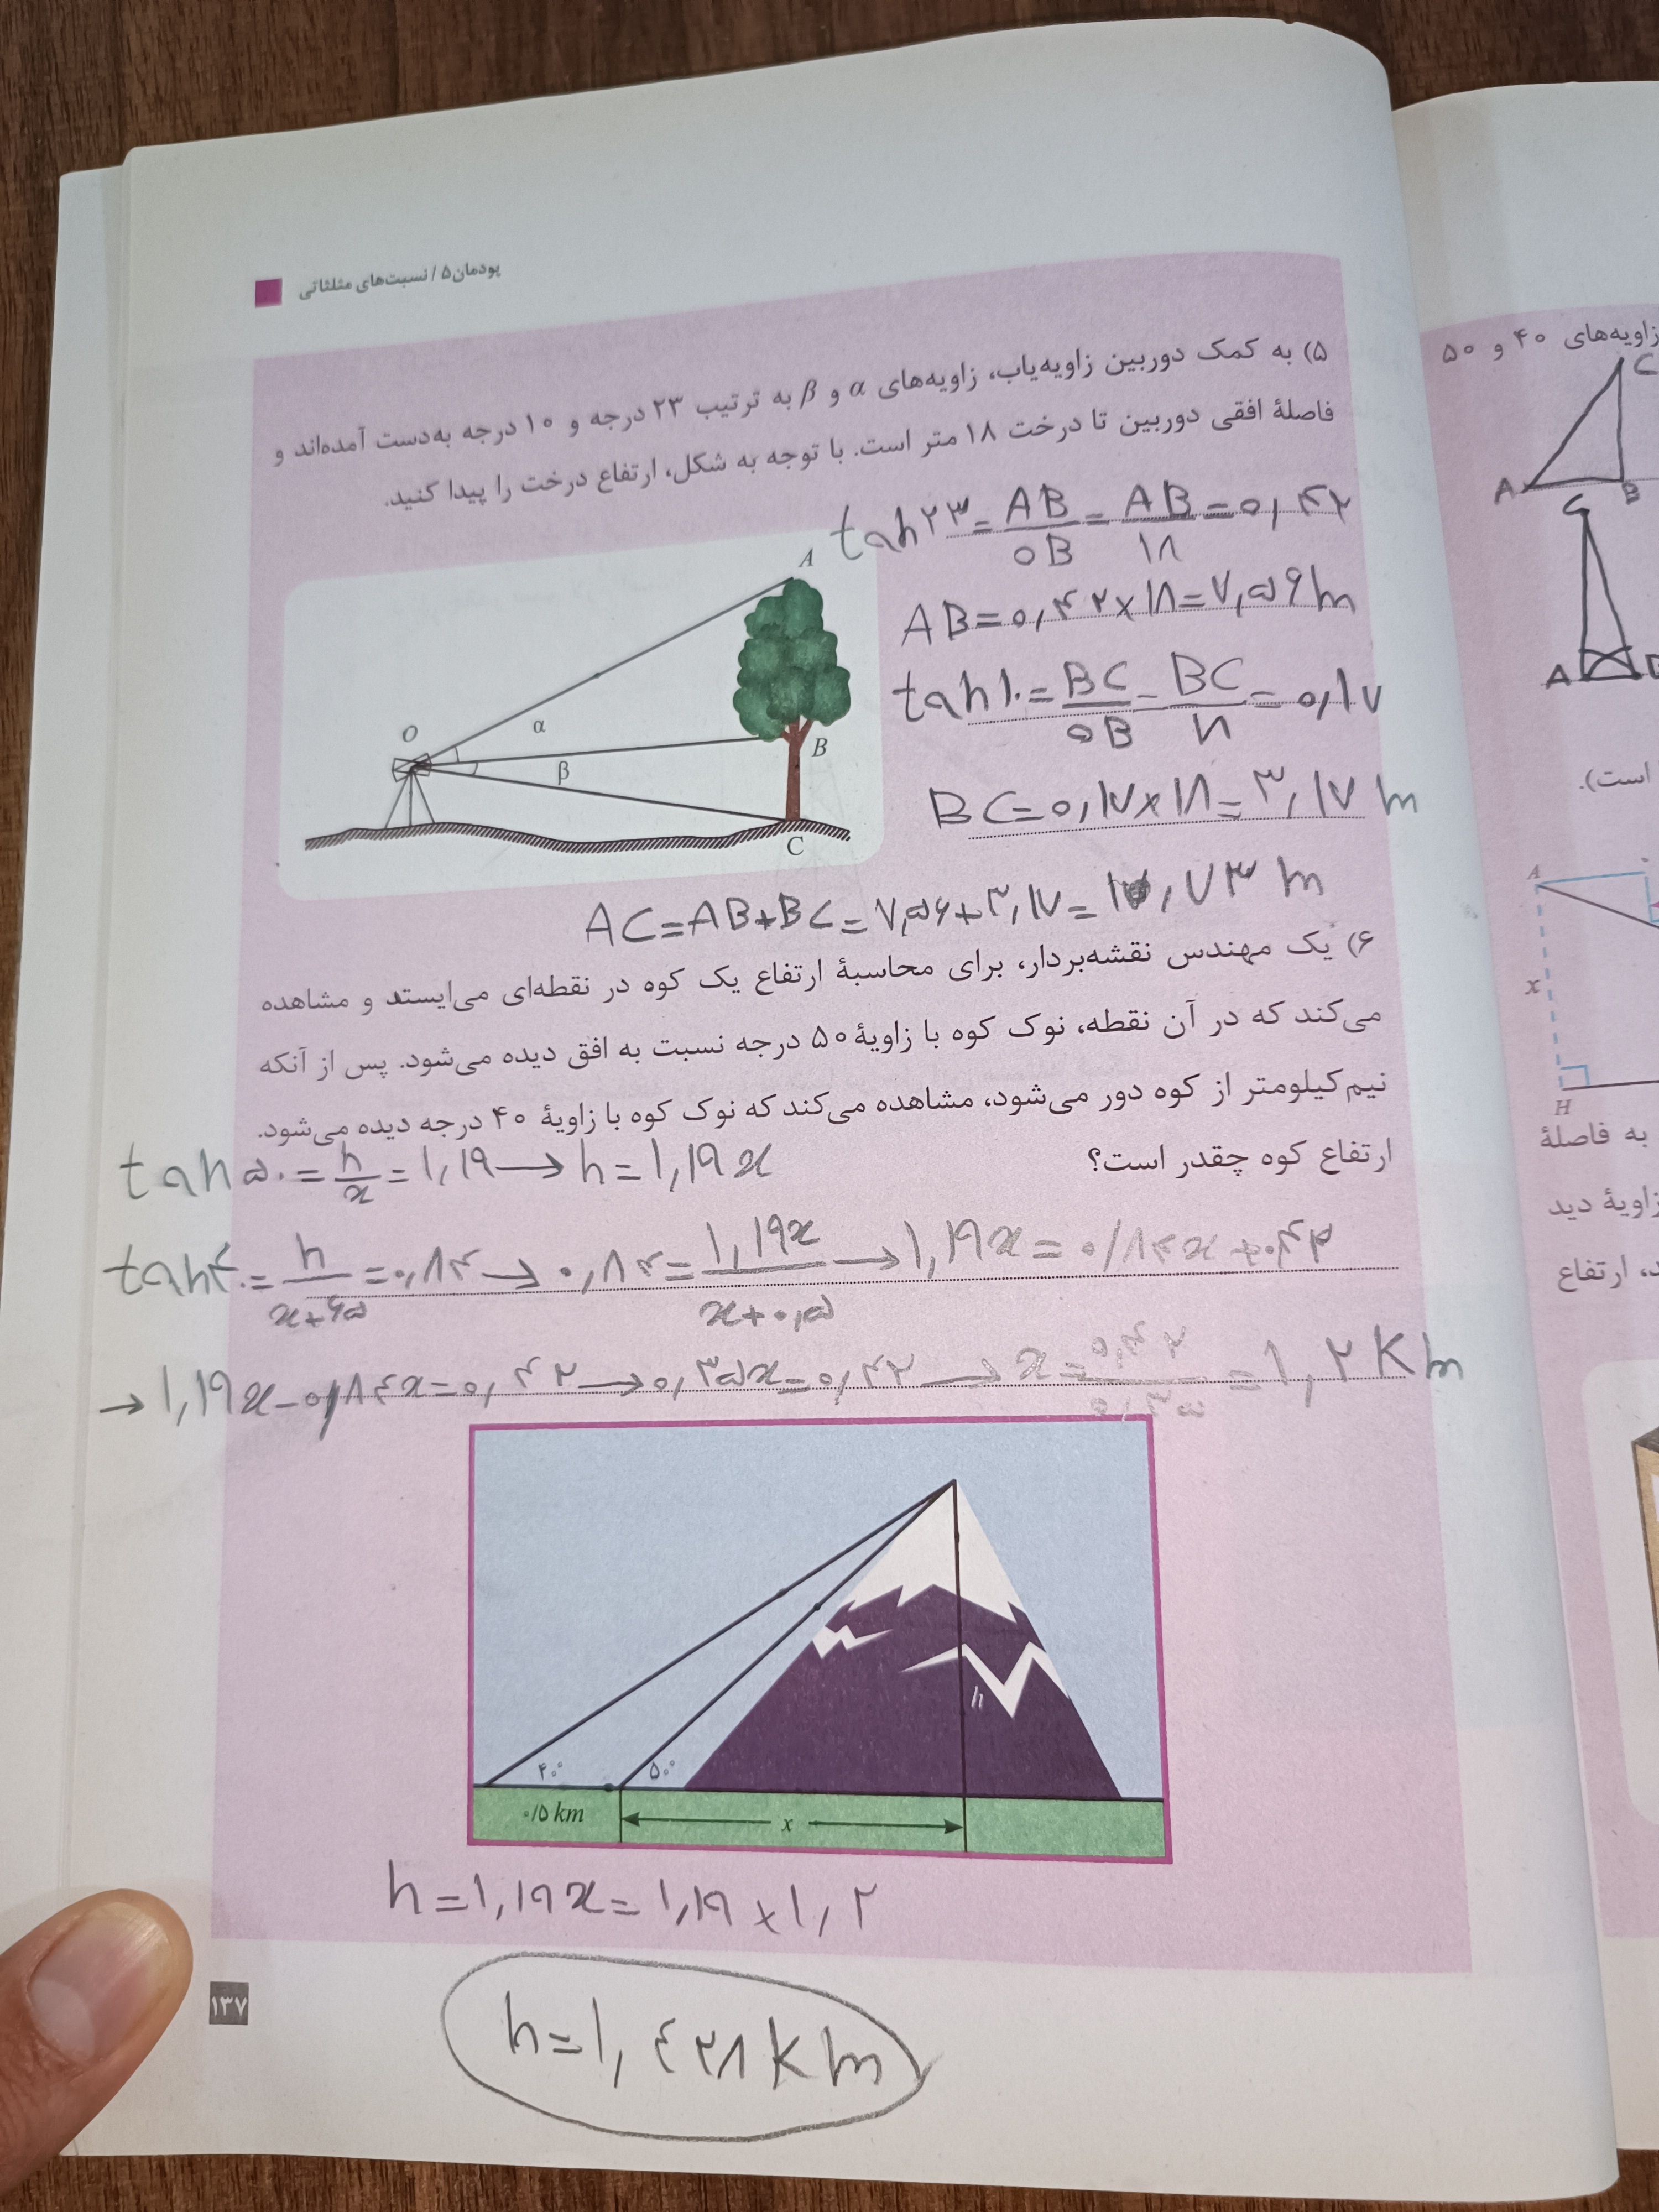 پودمان ۵ / نسبت‌های مثلثاتی
۵) به کمک دوربین زاویه‌یاب، زاویه‌های α و β به ترتیب ۲۳ درجه و ۱۰ درجه به‌دست آمده‌اند و
فاصلهٔ افقی دوربین تا درخت ۱۸ متر است. با توجه به شکل، ارتفاع درخت را پیدا کنید.
tan ۲۳ = AB/OB = AB/۱۸ = ۰,۴۲
AB = ۰,۴۲ × ۱۸ = ۷,۵۶ m
tan ۱۰ = BC/OB = BC/۱۸ = ۰,۱۷
BC = ۰,۱۷ × ۱۸ = ۳,۱۷ m
A
O
α
B
β
C
AC = AB + BC = ۷,۵۶ + ۳,۱۷ = ۱۰,۷۳ m
۶) یک مهندس نقشه‌بردار، برای محاسبهٔ ارتفاع یک کوه در نقطه‌ای می‌ایستد و مشاهده
می‌کند که در آن نقطه، نوک کوه با زاویهٔ ۵۰ درجه نسبت به افق دیده می‌شود. پس از آنکه
نیم کیلومتر از کوه دور می‌شود، مشاهده می‌کند که نوک کوه با زاویهٔ ۴۰ درجه دیده می‌شود.
ارتفاع کوه چقدر است؟
tan ۵۰ = h/x = ۱,۱۹ → h = ۱,۱۹ x
tan ۴۰ = h/x+۰,۵ = ۰,۸۴ → ۰,۸۴ = ۱,۱۹x/x+۰,۵ → ۱,۱۹x = ۰/۸۴x + ۰.۴۲
→ ۱,۱۹x - ۰/۸۴x = ۰,۴۲ → ۰,۳۵x = ۰,۴۲ → x = ۰,۴۲/۰,۳۵ = ۱,۲ Km
h
۴۰° ۵۰°
۰/۵ km
x
h = ۱,۱۹ x = ۱,۱۹ × ۱,۲
h = ۱,۴۲۸ km
۱۳۷
زاویه‌های ۴۰ و ۵۰
C
A
B
C
A
است).
A
x
H
به فاصلهٔ
زاویهٔ دید
ارتفاع